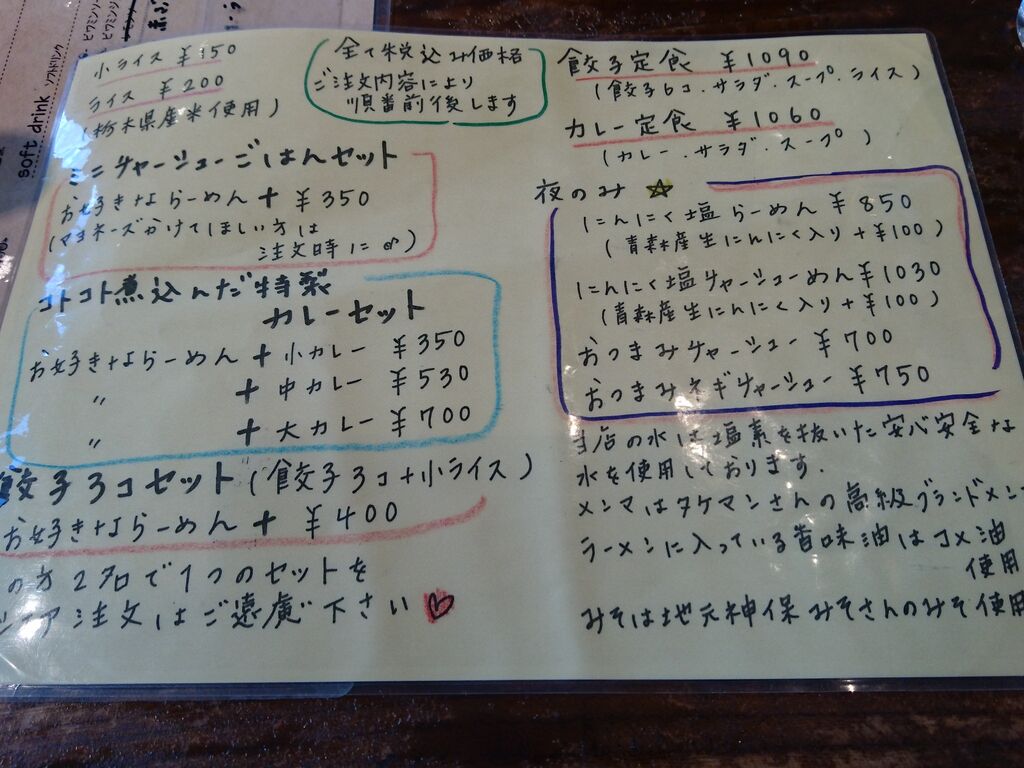 soft drink ソフトドリンク
小ライス ¥150
ライス ¥200
(栃木県産米使用)
全て税込み価格
ご注文内容により
順番前後します
ミニチャーシューごはんセット
お好きならーめん + ¥350
(マヨネーズかけてほしい方は
注文時に♂)
コトコト煮込んだ特製
カレーセット
お好きならーめん + 小カレー ¥350
〃 + 中カレー ¥530
〃 + 大カレー ¥700
餃子3コセット(餃子3コ+小ライス)
お好きならーめん + ¥400
の方2名で1つのセットを
シェア注文はご遠慮下さい♡
餃子定食 ¥1090
(餃子6コ.サラダ.スープ.ライス)
カレー定食 ¥1060
(カレー.サラダ.スープ)
夜のみ ☆
にんにく塩らーめん ¥850
(青森産生にんにく入り+¥100)
にんにく塩チャーシューめん ¥1030
(青森産生にんにく入り+¥100)
おつまみチャーシュー ¥700
おつまみネギチャーシュー ¥750
当店の水は塩素を抜いた安心安全な
水を使用しております.
メンマはタケマンさんの高級グランドメンマ
ラーメンに入っている旨味油はコメ油
使用
みそは地元神保みそさんのみそ使用